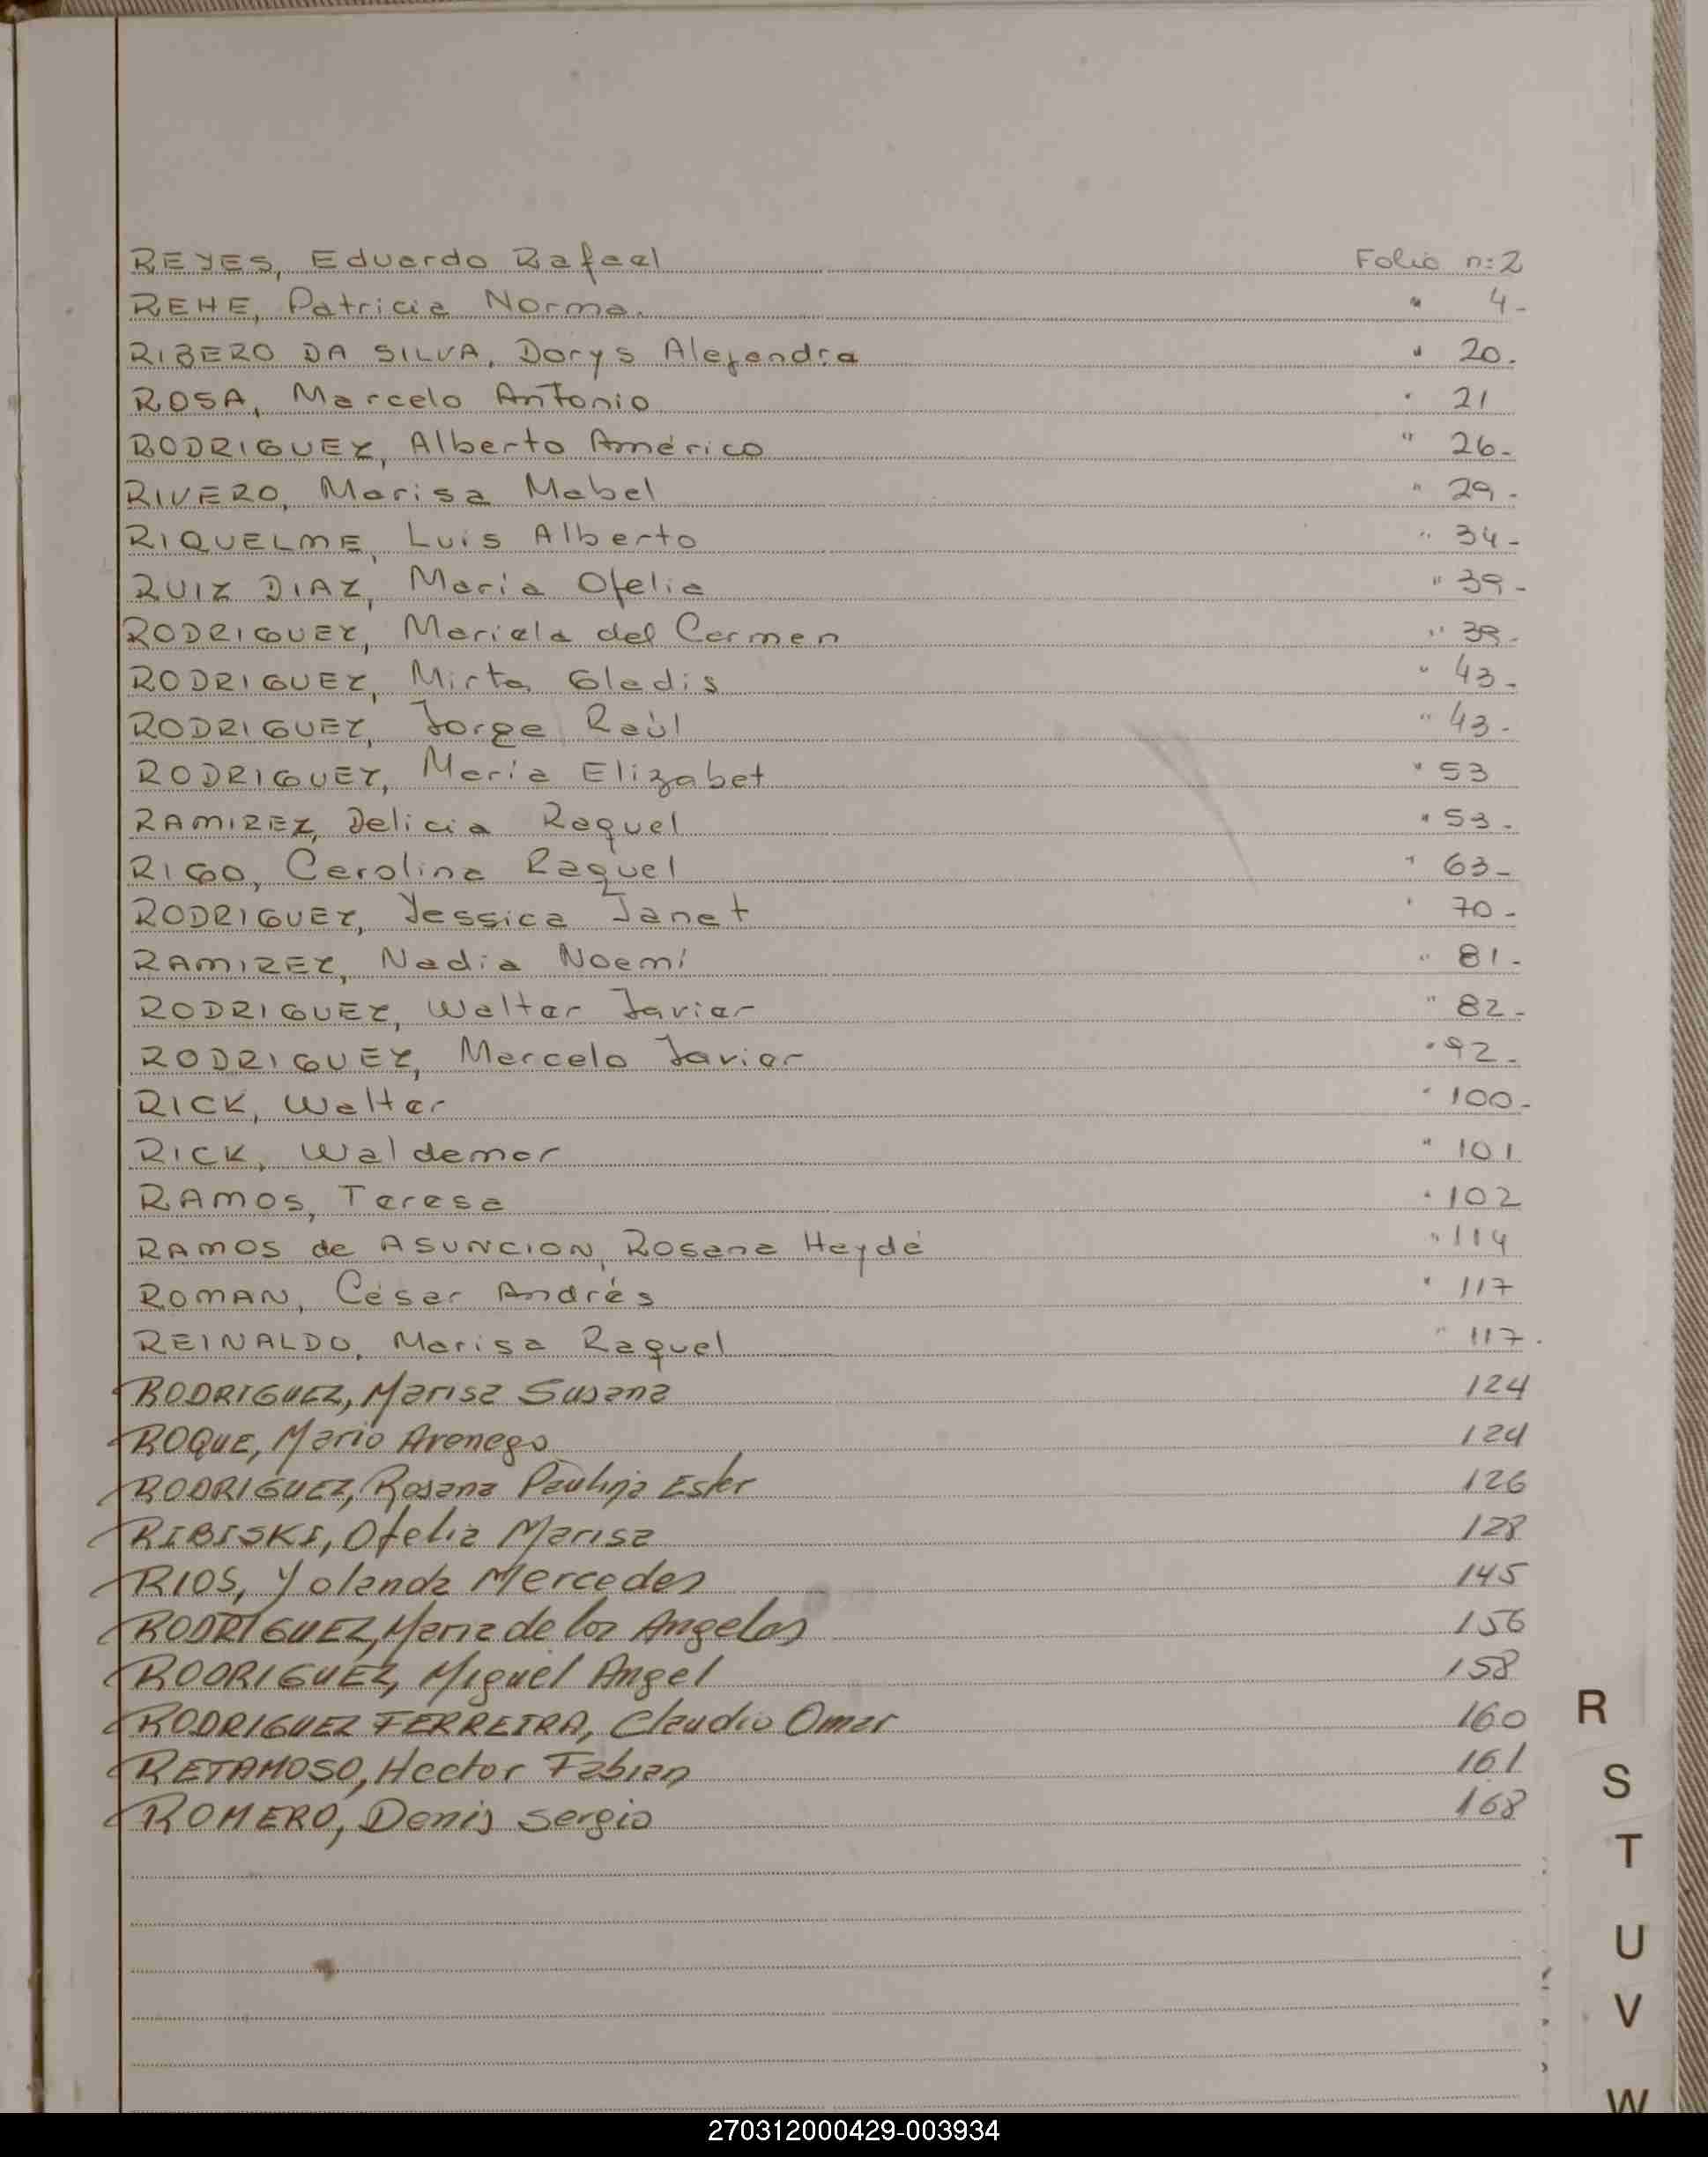 REYES, Eduardo Rafael Folio n: 2
REHE, Patricia Norma. " 4-
RIBERO DA SILVA, Dorys Alejandra " 20.
ROSA, Marcelo Antonio " 21
RODRIGUEZ, Alberto Américo " 26-
RIVERO, Marisa Mabel " 29-
RIQUELME, Luis Alberto " 34-
RUIZ DIAZ, María Ofelia " 39-
RODRIGUEZ, Mariela del Carmen " 39-
RODRIGUEZ, Mirta Gladis " 43-
RODRIGUEZ, Jorge Raúl " 43-
RODRIGUEZ, María Elizabet " 53
RAMIREZ, Delicia Raquel " 53-
RIGO, Carolina Raquel " 63-
RODRIGUEZ, Jessica Janet " 70-
RAMIREZ, Nadia Noemí " 81-
RODRIGUEZ, Walter Javier " 82-
RODRIGUEZ, Marcelo Javier " 92-
RICK, Walter " 100-
RICK, Waldemar " 101
RAMOS, Teresa " 102
RAMOS de ASUNCION, Rosana Heydé " 114
ROMAN, César Andrés " 117
REINALDO, Marisa Raquel " 117.
RODRIGUEZ, Marisa Susana 124
ROQUE, Mario Arenego 124
RODRIGUEZ, Rosana Paulina Ester 126
RIBISKI, Ofelia Marisa 128
RIOS, Yolanda Mercedes 145
RODRIGUEZ, Maria de los Angeles 156
RODRIGUEZ, Miguel Angel 158
RODRIGUEZ FERREIRA, Claudio Omar 160
RETAMOSO, Hector Fabian 161
ROMERO, Denis Sergio 168
R
S
T
U
V
W
270312000429-003934